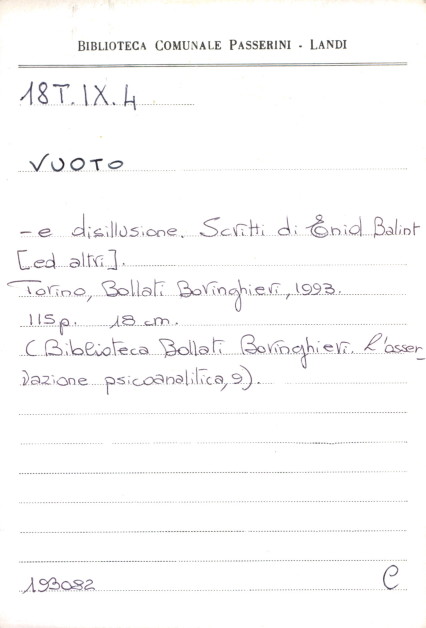 BIBLIOTECA COMUNALE PASSERINI - LANDI
18T.IX.4
VUOTO
- e disillusione. Scritti di Enid Balint
[ed altri].
Torino, Bollati Boringhieri, 1993.
115p. 18 cm.
(Biblioteca Bollati Boringhieri. L'osser-
vazione psicoanalitica, 9).
193082 C